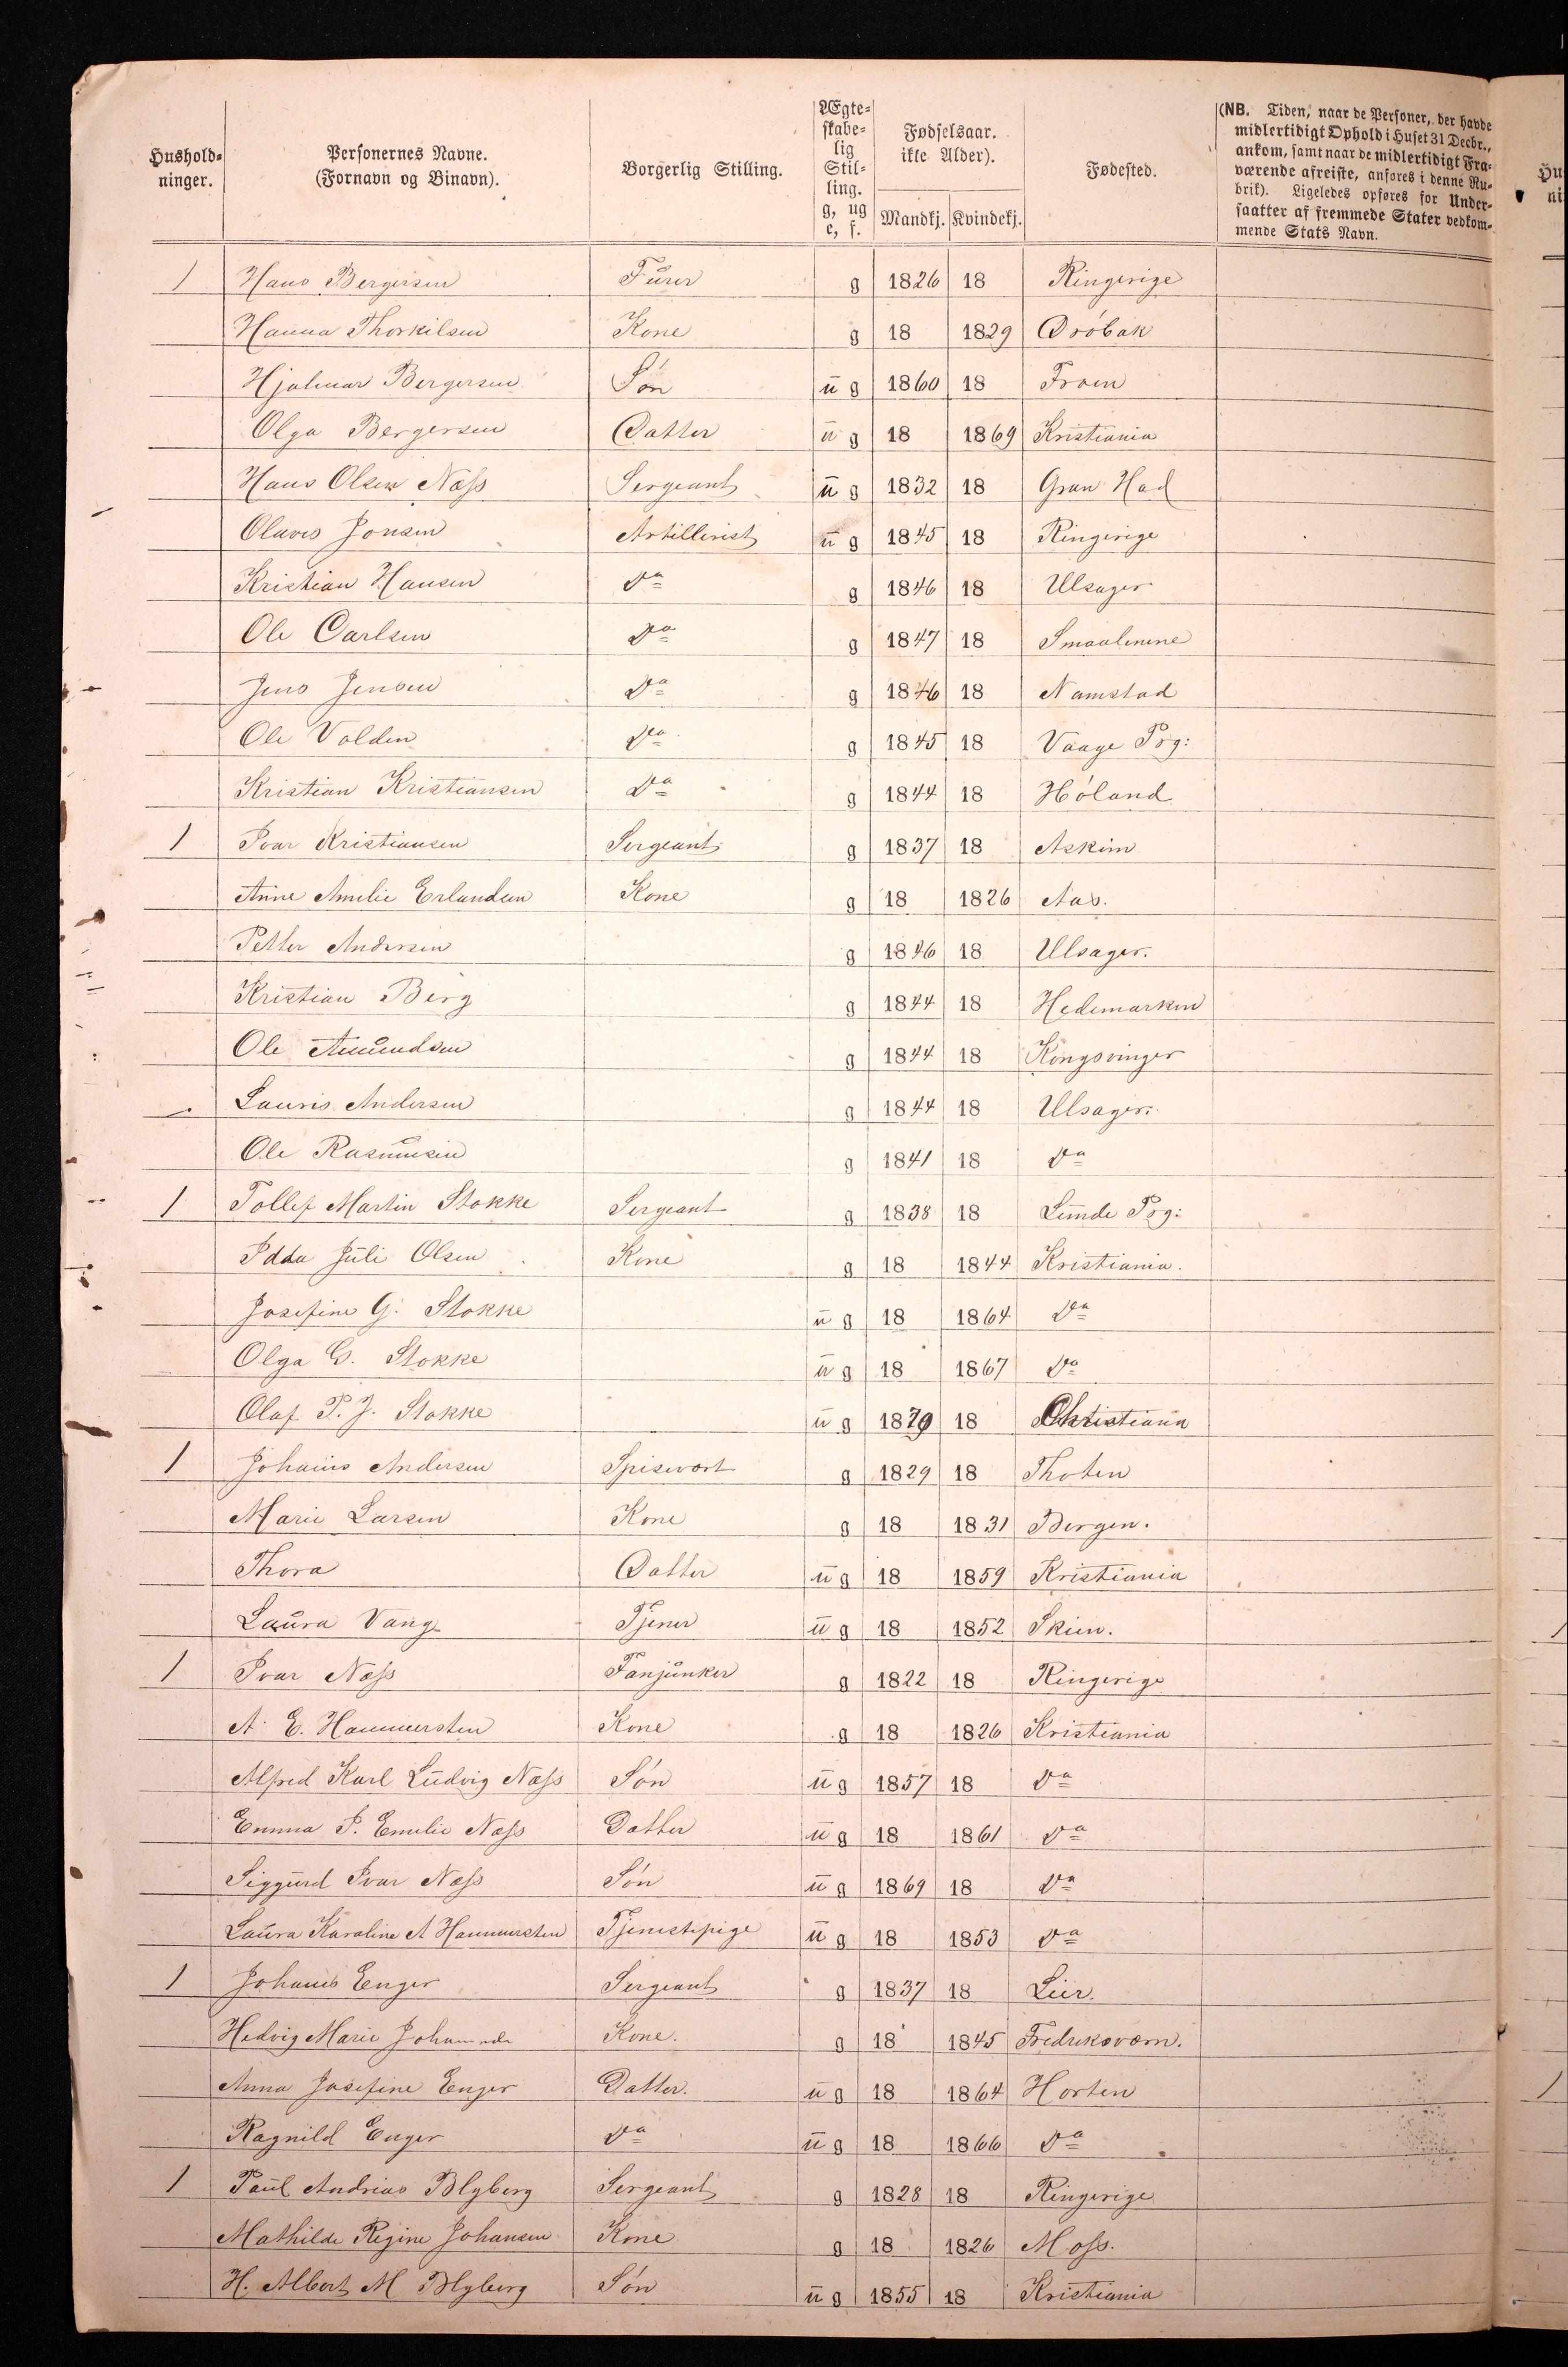 Hushold-
ninger.
Personernes Navne.
(Fornavn og Binavn).
Borgerlig Stilling.
Ægte-
skabe-
lig
Stil-
ling.
g, ug
e, f.
Fødselsaar.
ikke Alder).
Mandkj. Kvindekj.
Fødested.
(NB. Tiden, naar de Personer, der havde
midlertidigt Ophold i Huset 31 Decbr.,
ankom, samt naar de midlertidigt Fra-
værende afreiste, anføres i denne Ru-
brik). Ligeledes opføres for Under-
saatter af fremmede Stater vedkom-
mende Stats Navn.
1 Hans Bergersen Furer g 1826 18 Ringerige
Hanna Thorkilsen Kone g 18 1829 Drøbak
Hjalmar Bergersen Søn u g 1860 18 Froen
Olga Bergersen Datter u g 18 1869 Kristiania
Hans Olsen Næss Sergeant u g 1832 18 Gran Had
Olaves Jonsen Artillerist u g 1845 18 Ringerige
Kristian Hansen Do g 1846 18 Ulsager
Ole Carlsen Do g 1847 18 Smaalenene
Jens Jensen Do g 1846 18 Namstad
Ole Volden Do g 1845 18 Vaage Prg:
Kristian Kristiansen Do g 1844 18 Høland
1 Ivar Kristiansen Sergeant g 1837 18 Askim
Anne Amelie Erlandsen Kone g 18 1826 Aas.
Petter Andersen g 1846 18 Ulsager.
Kristian Berg g 1844 18 Hedemarken
Ole Amundsen g 1844 18 Kongsvinger
Lauris Andersen g 1844 18 Ulsager.
Ole Rasmusen g 1841 18 Do
1 Tollef Martin Stokke Sergeant g 1838 18 Lunde Prg:
Idda Juli Olsen Kone g 18 1844 Kristiania.
Josefine G. Stokke u g 18 1864 Do
Olga G. Stokke u g 18 1867 Do
Olaf P. J. Stokke u g 1870 18 Christiana
1 Johanes Andersen Spisevært g 1829 18 Thoten
Marie Larsen Kone g 18 1831 Bergen.
Thora Datter u g 18 1859 Kristiania
Laura Vang Tjener u g 18 1852 Skien.
1 Ivar Næss Fanjunker g 1822 18 Ringerige
A. E. Hammersten Kone g 18 1826 Kristiania
Alfred Karl Ludvig Næss Søn u g 1857 18 Do
Emma P. Emelie Næss Datter u g 18 1861 Do
Siggurd Ivar Næss Søn u g 1869 18 Do
Laura Karoline A Hammersten Tjenestepige u g 18 1853 Do
1 Johanes Enger Sergeant g 1837 18 Lier.
Hedvig Marie Kone. g 18 1845 Fredriksværn.
Anna Josefine Enger Datter. u g 18 1864 Horten
Ragnild Enger Do u g 18 1866 Do
1 Paul Andrias Blyberg Sergeant g 1828 18 Ringerige
Mathilde Regine Johansen Kone g 18 1826 Moss.
H. Albert M Blyberg Søn u g 1855 18 Kristiania